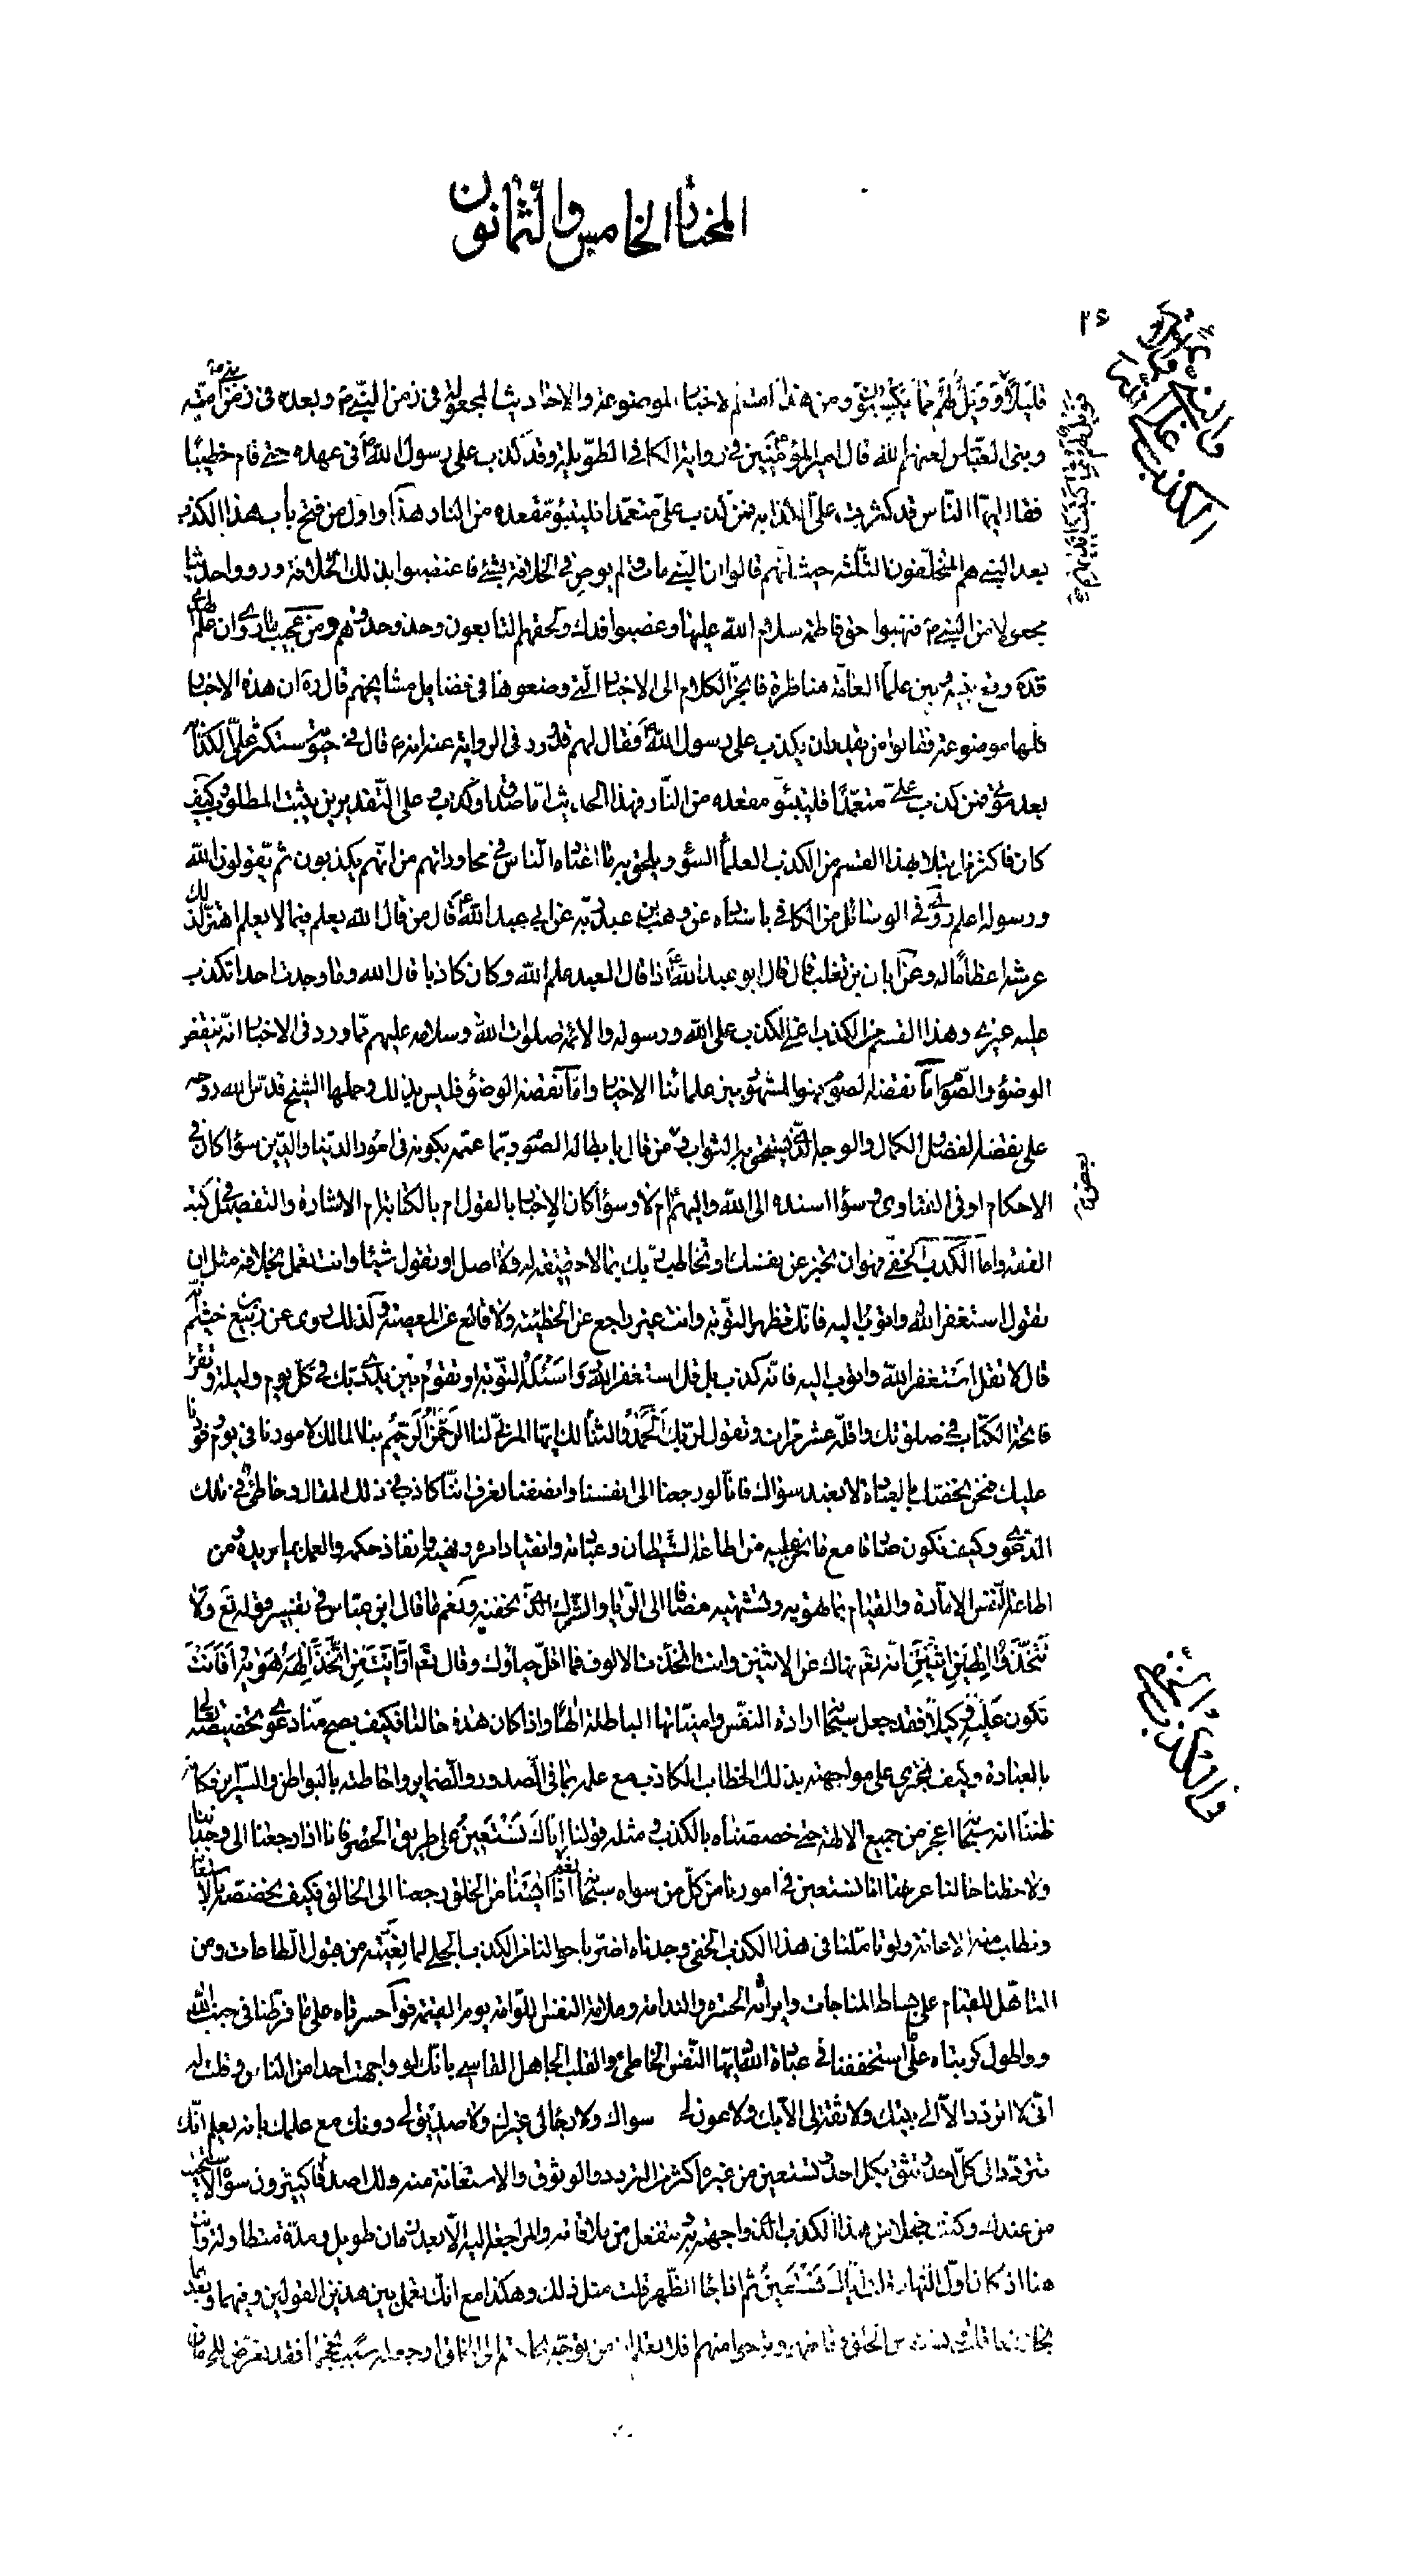 المختار الخامس والثمانون
والنبي والأئمة
الكذب على الله
قليلا فويل لهم مما يكسبون ومن هذا القسم الاخبار الموضوعة والاحاديث المجعولة في زمن النبي ص وبعده في زمن بني امية
وبنى العباس لعنهم الله قال امير المؤمنين في رواية الكافي الطويلة وقد كذب على رسول الله في عهده حتى قام خطيبا
فقال ايها الناس قد كثرت على الكذابة فمن كذب على متعمدا فليتبوء مقعده من النار هذا واول من فتح باب هذا الكذب
بعد النبي هم المتخلفون الثلثة حيث انهم قالوا ان النبي مات ولم يوص في الخلافة بشئ فاغتصبوا بذلك الخلافة ورووا حديثا
مجعولا من النبي ص فنهبوا حق فاطمة سلام الله عليها وغصبوا فدك ولحقهم التابعون وحذوا حذوهم ومن عجيب ما روى ان علم الهدى
قده وقع بينه وبين علماء العامة مناظرة فانجز الكلام الى الاخبار التي وضعوها في فضايل مشايخهم قال ره ان هذه الاخبار
كلها موضوعة فقالوا من يقدر ان يكذب على رسول الله فقال لهم قد ورد في الرواية عنه انه قال في حيوته ستكثر على الكذابة
بعد موتى فمن كذب على متعمدا فليتبوء مقعده من النار فهذا الحديث اما صدق او كذب وعلى التقديرين يثبت المطلوب وكيف
كان فاكثر من ابتلا بهذا القسم من الكذب العلماء السوء ويلحق به ما اعتاه الناس في محاوراتهم من انهم يكذبون ثم يقولون الله
ورسوله اعلم روى في الوسائل من الكافي باسناده عن وهب بن عبد ربه عن ابي عبد الله قال من قال الله يعلم فيما لا يعلم اهتز لذلك
عرشه اعظاما له وعن ابان بن تغلب قال قال ابو عبد الله اذا قال العبد علم الله وكان كاذبا قال الله وما وجدت احدا تكذب
عليه غيرى وهذا القسم من الكذب اعنى الكذب على الله ورسوله والائمة صلوات الله وسلامه عليهم مما ورد في الاخبار انه ينقض
الوضوء والصوم اما نقضه الصوم فهو المشهور بين علمائنا الاخيار واما نقضه الوضوء فليس بذلك وحملها الشيخ قدس الله روحه
على نقضه لفضل الكمال والوجه الذى يستحق به الثواب من قال بابطاله الصوم ربما عممه بكونه في امور الدنيا والدين سواء كان في
الاحكام او في الفتاوى وسواء اسنده الى الله واليهم ام لا وسواء كان الاخبار بالقول ام بالكتابة ام الاشارة والتفصيل في كتب
الفقه واما الكذب الخفى فهو ان تخبر عن نفسك او تخاطب ربك بما لا حقيقة له ولا اصل او تقول شيئا وانت تعمل بخلافه مثل ان
تقول استغفر الله واتوب اليه فانك تظهر التوبة وانت غير راجع عن الخطيئة ولا قالع عن المعصية ولذلك روى عن ربيع بن خيثم
قال لا تقل استغفر الله واتوب اليه فانه كذب بل قل استغفر الله واسئله التوبة او تقوم بين يدى ربك في كل يوم وليلة وتقرء
فاتحة الكتاب في صلوتك واقله عشر مرات وتقول لربك الحمد والثناء لك ايها المربى لنا الرحمن الرحيم بنا المالك لامورنا في يوم فوتنا
عليك فنحن نخصك بالعبادة لا نعبد سواك فانا لو رجعنا الى انفسنا وانصفنا نعرف اننا كاذب في ذلك المقال وخاطئ في تلك
الدعوى وكيف نكون صادقا مع ما نحن عليه من اطاعة الشيطان وعبادته وانقياد امره ونهيه وانفاذ حكمه والعمل بما يريده من
اطاعة النفس الامارة والقيام بما تهويه وتشتهيه مضافا الى الريا والشرك الذى نخفيه ونعم ما قال ابن عباس في تفسير قوله تع ولا
تتخذوا الهين اثنين انه تعم نهاك عن الاثنين وانت اتخذت الالوف فما اقل حياؤك وقال تعم ارايت من اتخذ الهه هويه افانت
تكون عليه وكيلا فقد جعل سبحا ارادة النفس وامنياتها الباطلة الها واذا كان هذه حالنا فكيف يصح منا دعوى تخصيصه تعالى
بالعبادة وكيف نجترى على مواجهته بذلك الخطاب الكاذب مع علمه بما في الصدور والضماير واحاطته بالبواطن والسراير فكانا
ظننا انه سبحا اعجز من جميع الالهة حتى خصصناه بالكذب ومثله قولنا اياك نستعين على طريق الحصر فانا اذا رجعنا الى وجداننا
ولاحظنا حالنا عرفنا انا نستعين في امورنا من كل من سواه سبحا نعم اذا ايسنا من الخلق رجعنا الى الخالق فكيف نخصصه بالاستعانة
ونطلب منه الاعانة ولو تاملنا في هذا الكذب الخفى وجدناه اضر باحوالنا من الكذب الجلى لما يغيته من قبول الطاعات ومن
التاهل للقيام على بساط المناجات وايراثه الحسرة والندامة وملامة النفس اللوامة يوم القيمة فوا حسرتاه على ما فرطنا في جنب الله
وواطول كربتاه على استخفافنا في عبادة الله ايها النفس الخاطئ والقلب الجاهل القاسى بانك لو واجهت احدا من الناس وقلت له
انى لا اتردد الا الى بيتك ولا ثقة لى الا بك ولا عون لى سواك ولا رجا لى غيرك ولا صديق لى دونك مع علمك بانه يعلم انك
تتردد الى كل احد وتثق بكل احد وتستعين من غيره اكثر من التردد والوثوق والاستعانة منه ولك اصدقا كثيرون سواه الا تستحيى
من عندك وكنت خجلا من هذا الكذب الذى واجهته به تنفعل من ملاقاته والمراجعة اليه الا بعد زمان طويل ومدة متطاولة وانت
هنا اذ كان اول النهار قلت اياك نستعين ثم اذا جا الظهر قلت مثل ذلك وهكذا مع انك تعمل بين هذين القولين وفيهما وبعدهما
والكذب الخفى